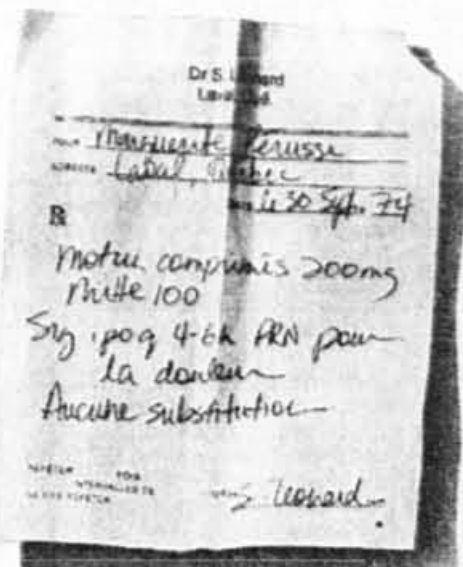 Dr S. Leonard
Laval, Qué.
Marguerite Perusse
ADRESSE Laval, Québec
le 30 Sept. 74
℞
Motrin comprimés 200mg
Mitte 100
Sig i po q 4-6h PRN pour
la douleur
Aucune substitution
RÉPÉTER FOIS
INTERVALLES DE
NE PAS RÉPÉTER
S. Leonard